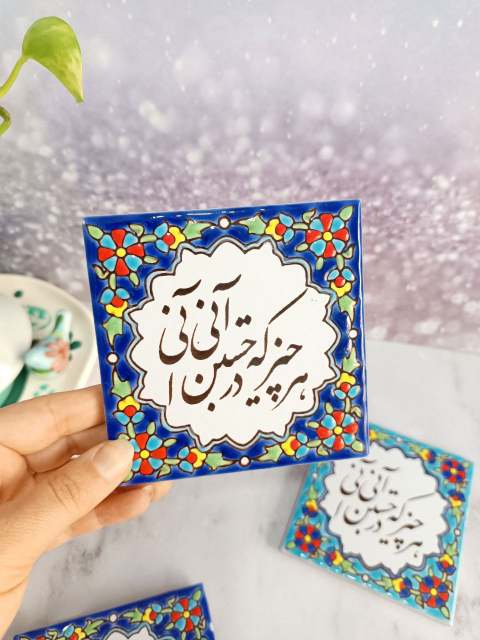 هر چیز که در جستن آنی آنی
هر چیز که در جستن آنی آنی